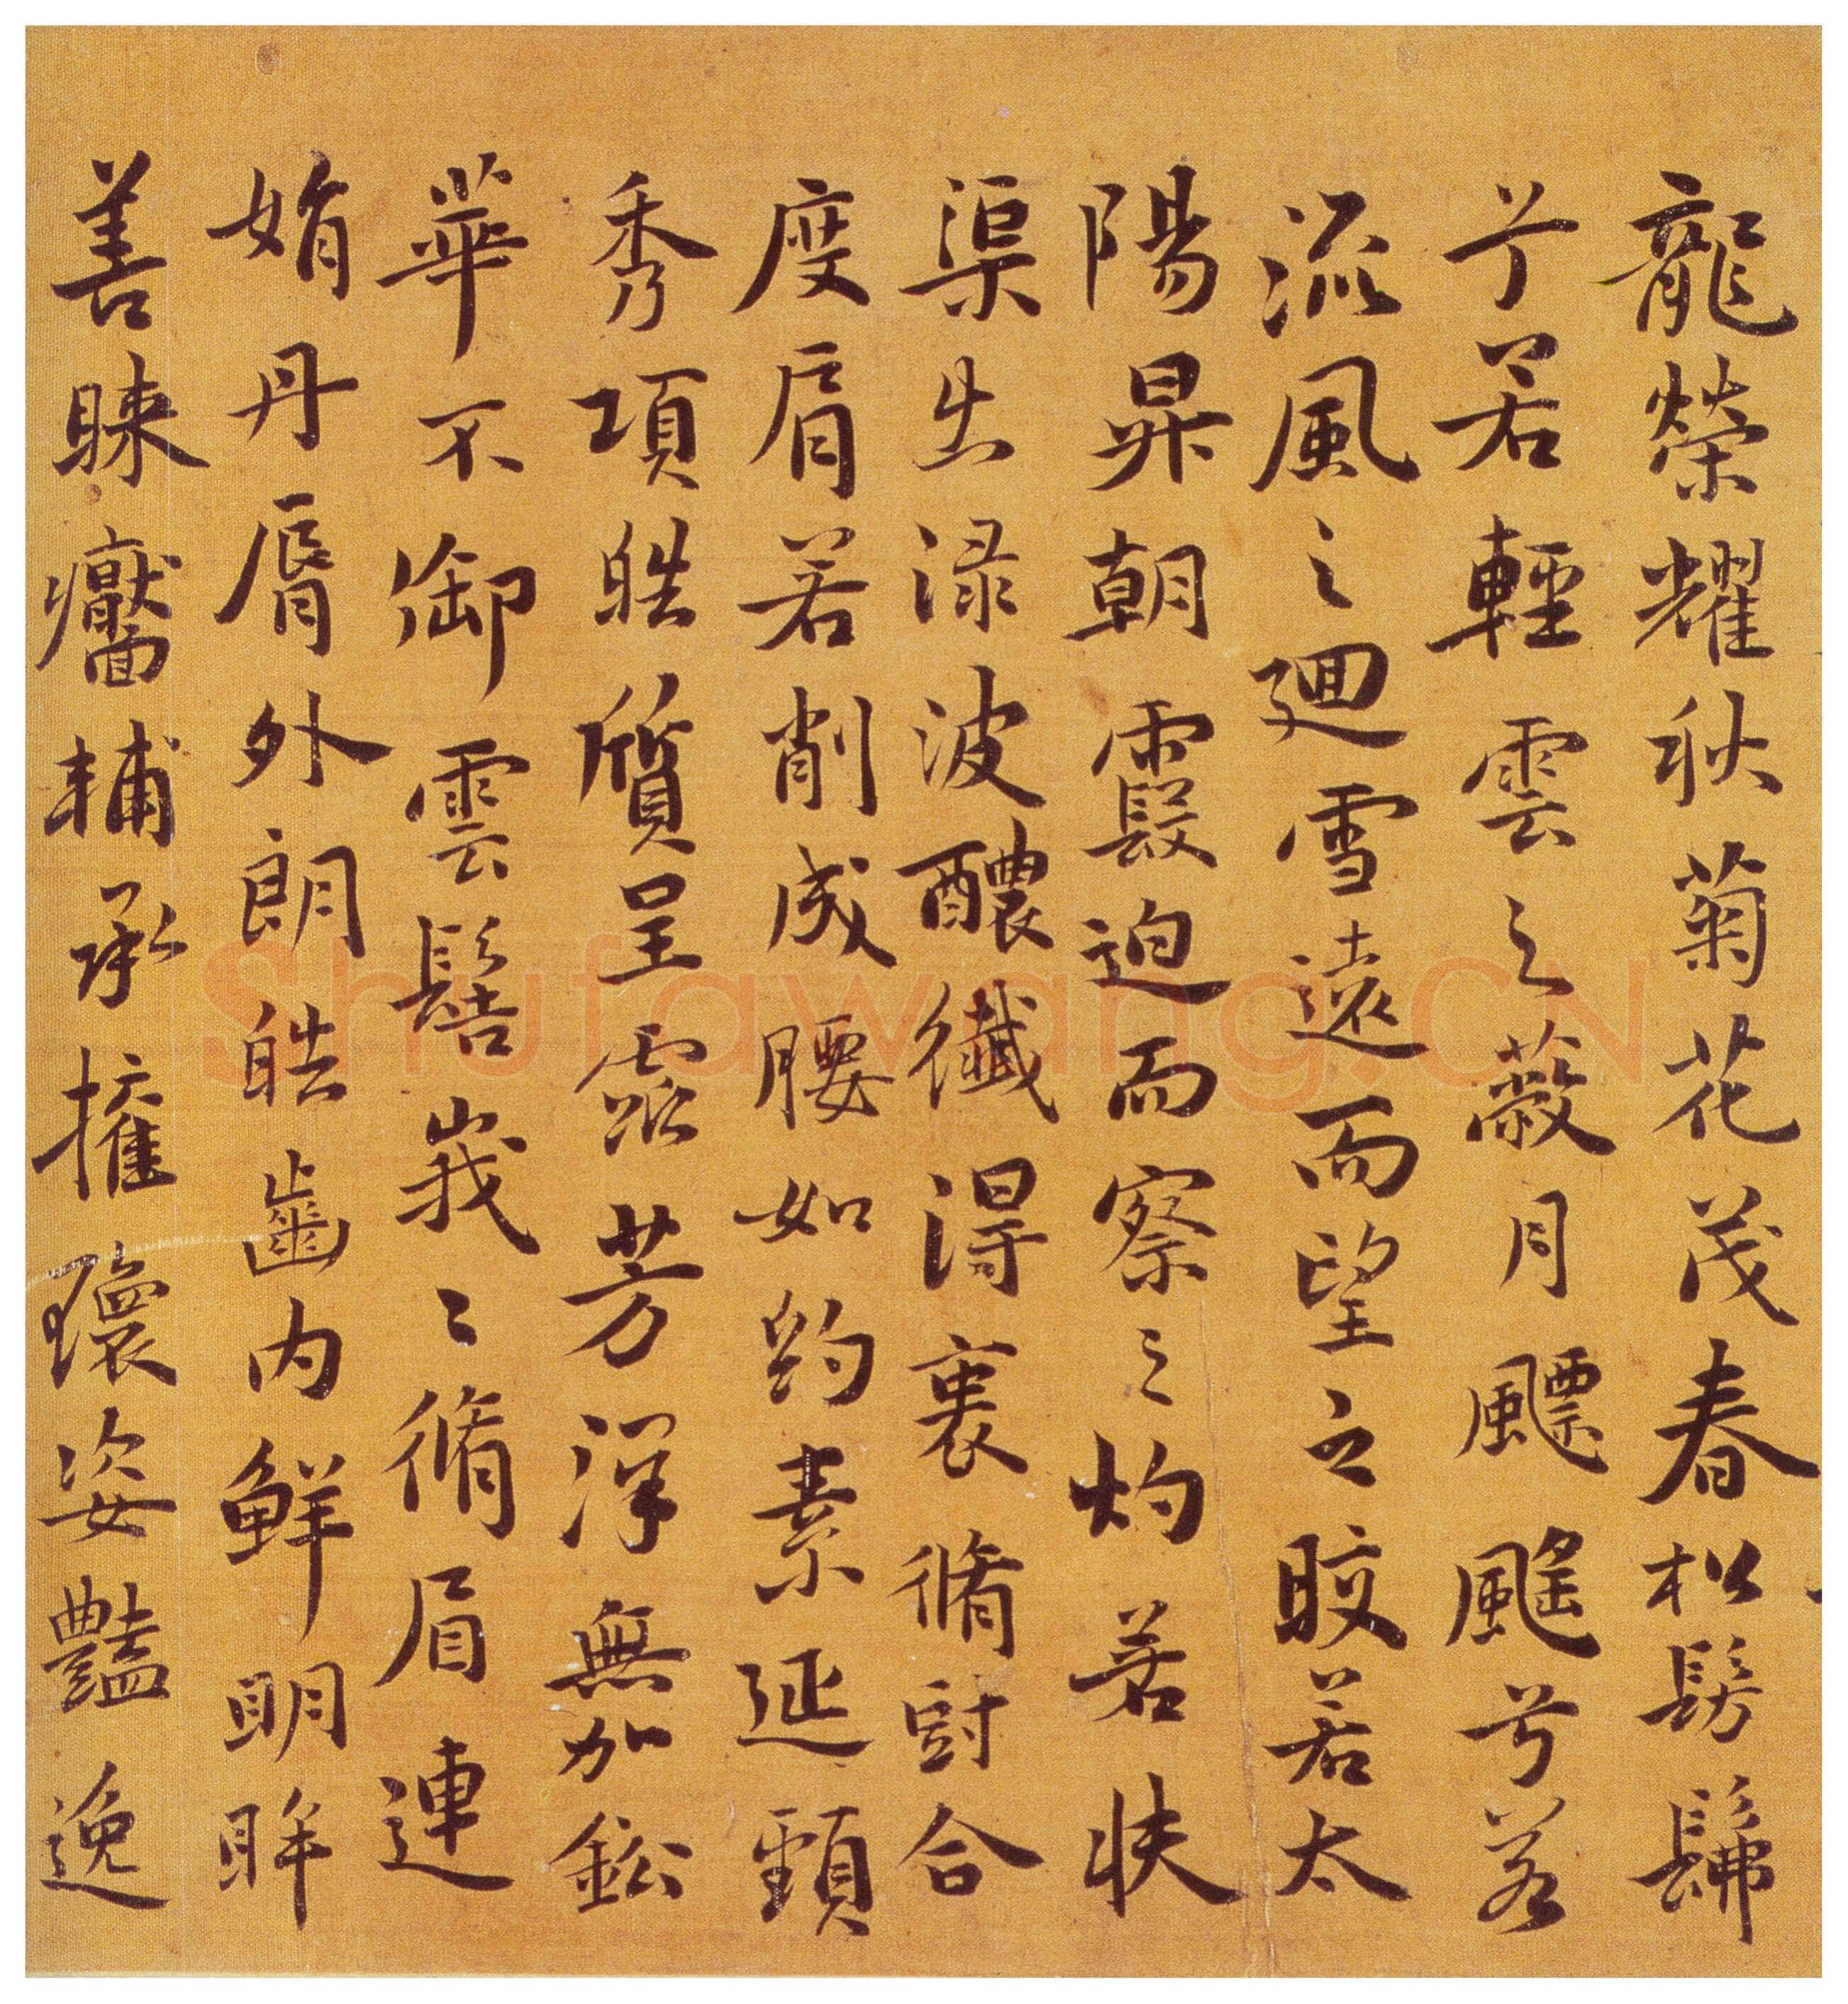 龍榮耀秋菊花茂春松髣髴
兮若輕雲之蔽月飄颻兮若
流風之廻雪遠而望之皎若太
陽昇朝霞迫而察之灼若扶
渠出渌波醲纖淂衷脩短合
度肩若削成腰如約素延頸
秀項皓質呈露芳澤無加鈆
華不御雲髻峩〻脩眉連
娟丹脣外朗皓齒内鮮明眸
善睞靨輔承權瓌姿豔逸
Shufawang.CN